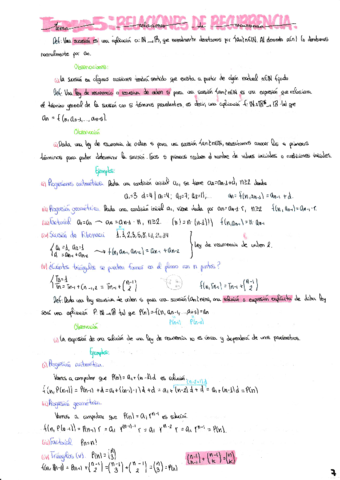 Tema 5: RELACIONES DE RECURRENCIA.
Def. Una sucesión es una aplicación a: N→R, que normalmente denotamos por {an}n∈N. Al denotado a(n) lo denotamos
normalmente por an.
Observaciones:
(i) La sucesión en algunas ocasiones tendrá sentido que exista a partir de algún natural n∈N fijado
Def. Una ley de recurrencia o ecuación de orden s para una sucesión {an}n∈N es una expresión que relaciona
el término general de la sucesión con s términos precedentes, es decir, una aplicación f: N×R^s→R tal que
an = f(n, an-1, ..., an-s).
Observación
(i) Dada una ley de recurrencia de orden s para una sucesión {an}n∈N, necesitamos conocer los s primeros
términos para poder determinar la sucesión. Estos s primeros reciben el nombre de valores iniciales o condiciones iniciales.
Ejemplos:
(i) Progresiones aritméticas. Dada una condición inicial a1, se tiene an = an-1 + d, n≥2 donde
a1=3 d=4 a1=4, a2=7, a3=11, an = f(n, an-1) = an-1 + d.
(ii) Progresión geométrica. Dada una condición inicial a1, viene dada por an = an-1 r, n≥2 f(n, an-1) = an-1 · r.
(iii) Factorial a1=1 → an = an-1 · n, n≥2 (n! = n·(n-1)!) f(n, an-1) = n·an-1
(iv) Sucesión de Fibonacci 1, 1, 2, 3, 5, 8, 13, 21, 34
→ f(n, an-1, an-2) = an-1 + an-2 Ley de recurrencia de orden 2.
(v) ¿Cuántos triángulos se pueden formar en el plano con n puntos?
f(n, Tn-1) = Tn-1 + (n-1 2)
Def. Dada una ley recurrencia de orden s para una sucesión {an}n∈N, una solución o expresión explícita de dicha ley
será una aplicación P: N→R tal que P(n) = f(n, an-1, ..., an-s) = an
Observación
(i) La expresión de una solución de una ley de recurrencia no es única y dependerá de unos parámetros.
Ejemplos:
(i) Progresión aritmética.
Vamos a comprobar que P(n) = a1 + (n-1)d es solución.
f(n, P(n-1)) = P(n-1) + d = a1 + ((n-1)-1)d + d = a1 + (n-2)d + d = a1 + (n-1)d = P(n)
(ii) Progresión geométrica.
Vamos a comprobar que P(n) = a1 r^n-1 es solución.
f(n, P(n-1)) = P(n-1) r = a1 r^(n-1)-1 r = a1 r^n-2 r = a1 r^n-1 = P(n).
(iii) Factorial Pn=n!
(iv) Triángulos (v). P(n) = (n 3)
7